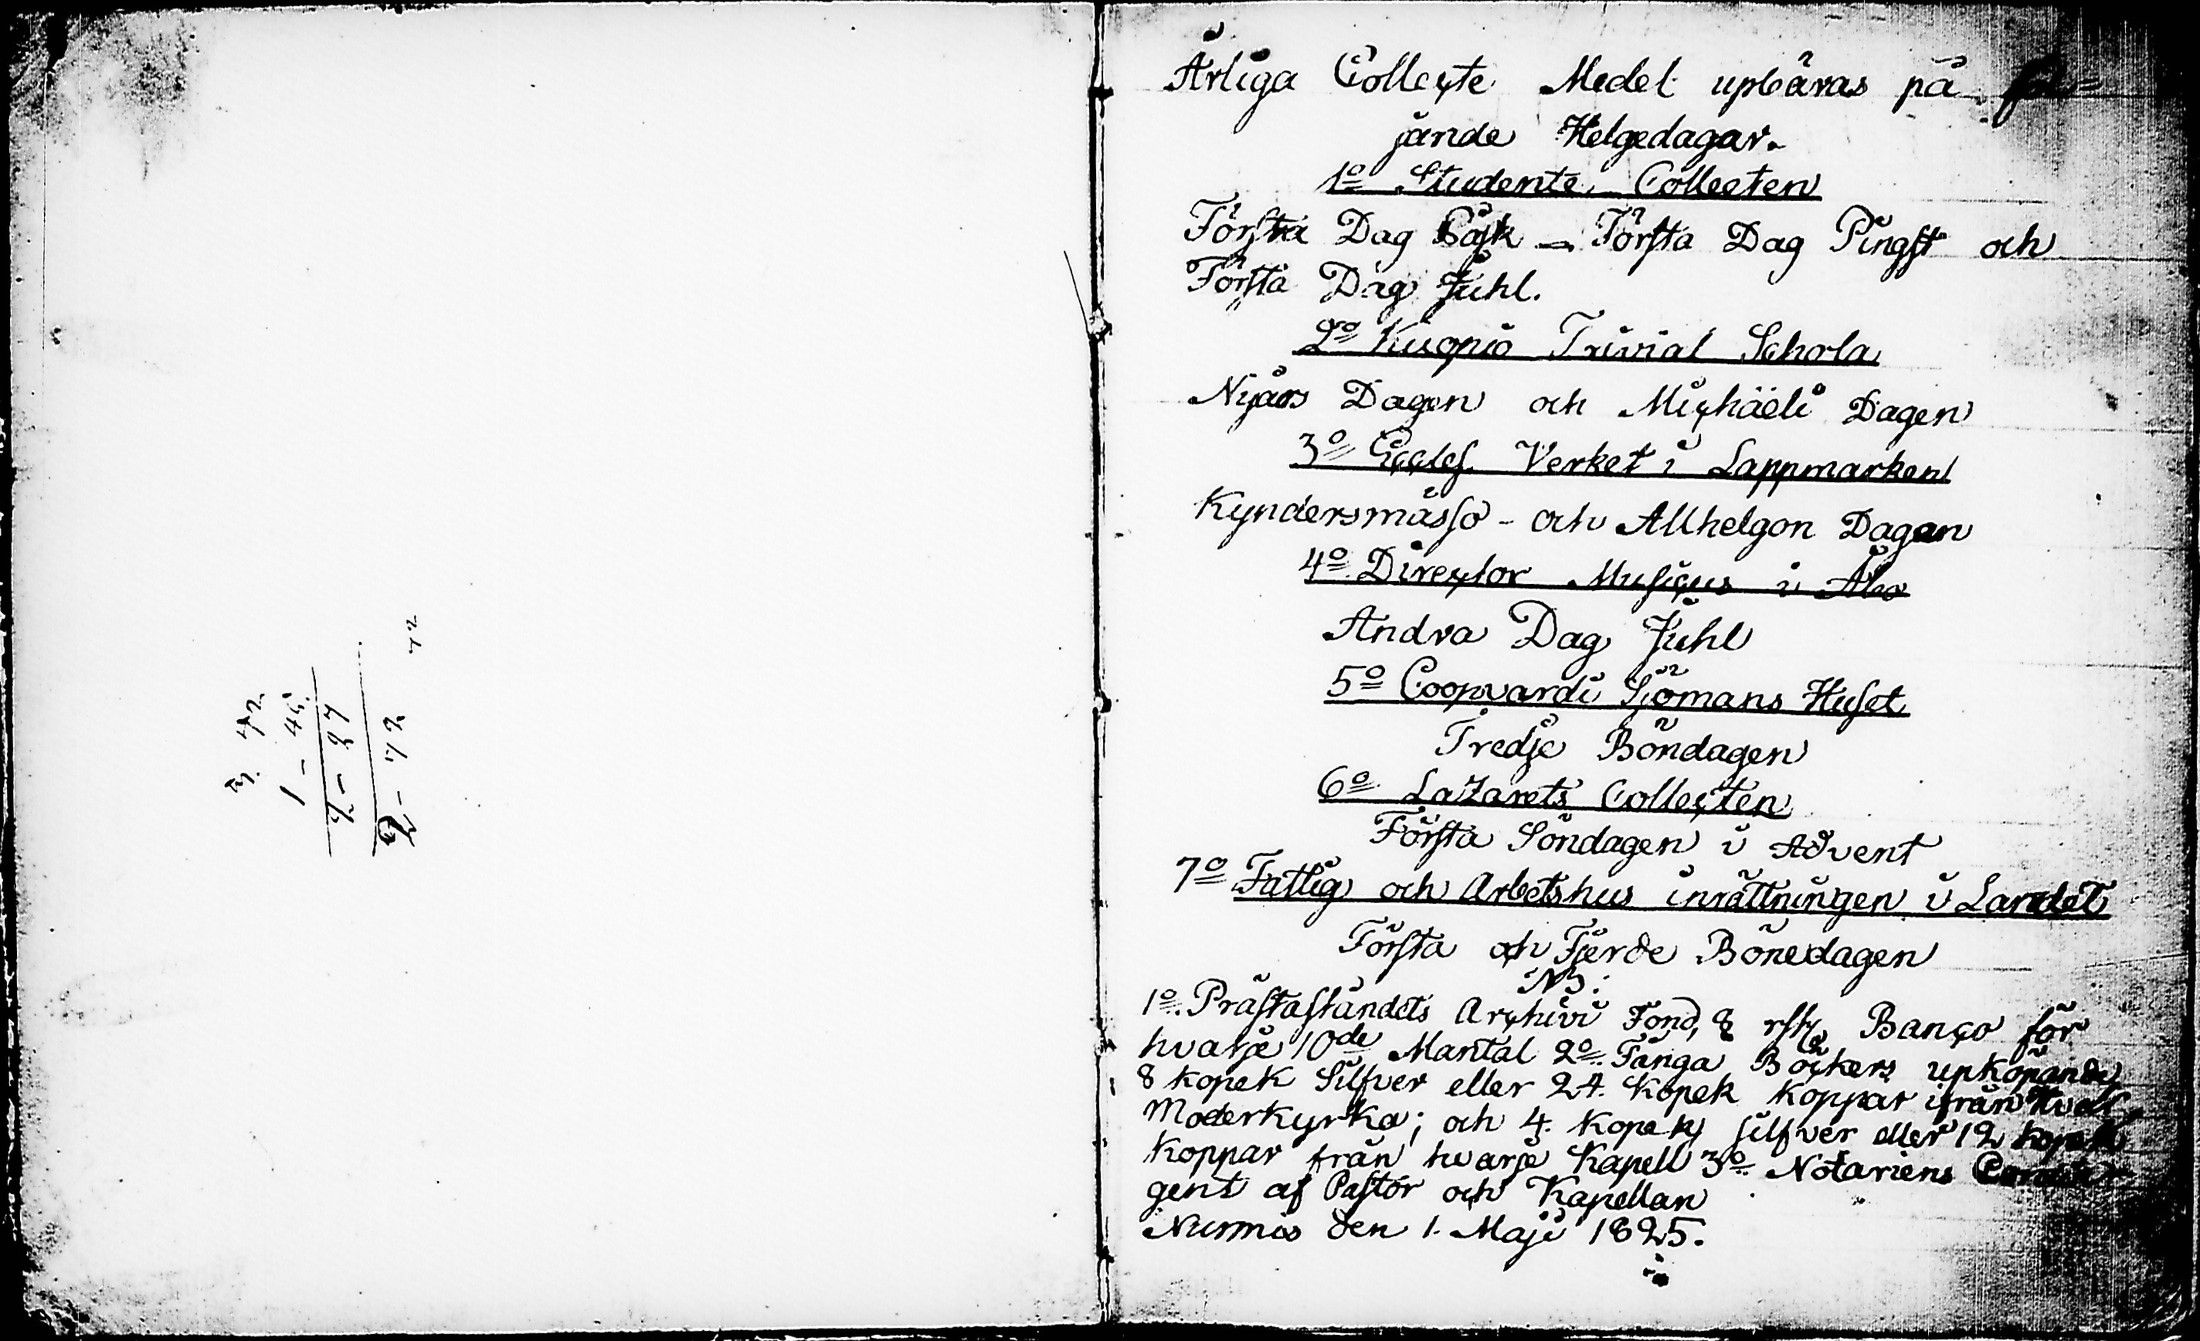 3. 72.
1 - 45.
2 - 27
2 - 72
72
Årliga Collecte Medel upbäras på föl=
jande Helgedagar.
1o Studente Collecten
Första Dag Påsk - Första Dag Pingst och
Första Dag Juhl.
2o Kuopio Trivial Schola
Nyårs Dagen och Michäeli Dagen
3o Eccles. Verket i Lappmarken
Kyndersmässo - och Allhelgon Dagen
4o Director Musicus i Åbo
Andra Dag Juhl
5o Coopvardi Sjömans Huset
Tredje Böndagen
6o Lazarets Collecten
Första Söndagen i Advent
7o Fattig och Arbetshus inrättningen i Landet
Första och Fjerde Bönedagen
NB:
1o. Prästaståndets Archivi Fond, 8 rsk Banco för
hvarje 10de Mantal 2o. Fånga Böckers upköpande
8 kopek Silfver eller 24. Kopek Koppar ifrån hvar
Moderkyrka; och 4. Kopek silfver eller 12 kopek
Koppar från hvarje Kapell 3o Notariens
gent af Pastor och Kapellan
Nurmis den 1. Maji 1825.